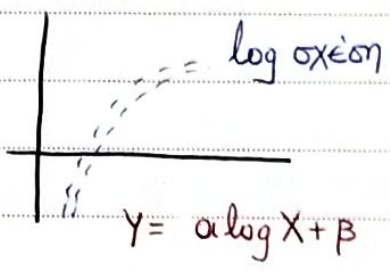 log σχέση
Y = α log X + β